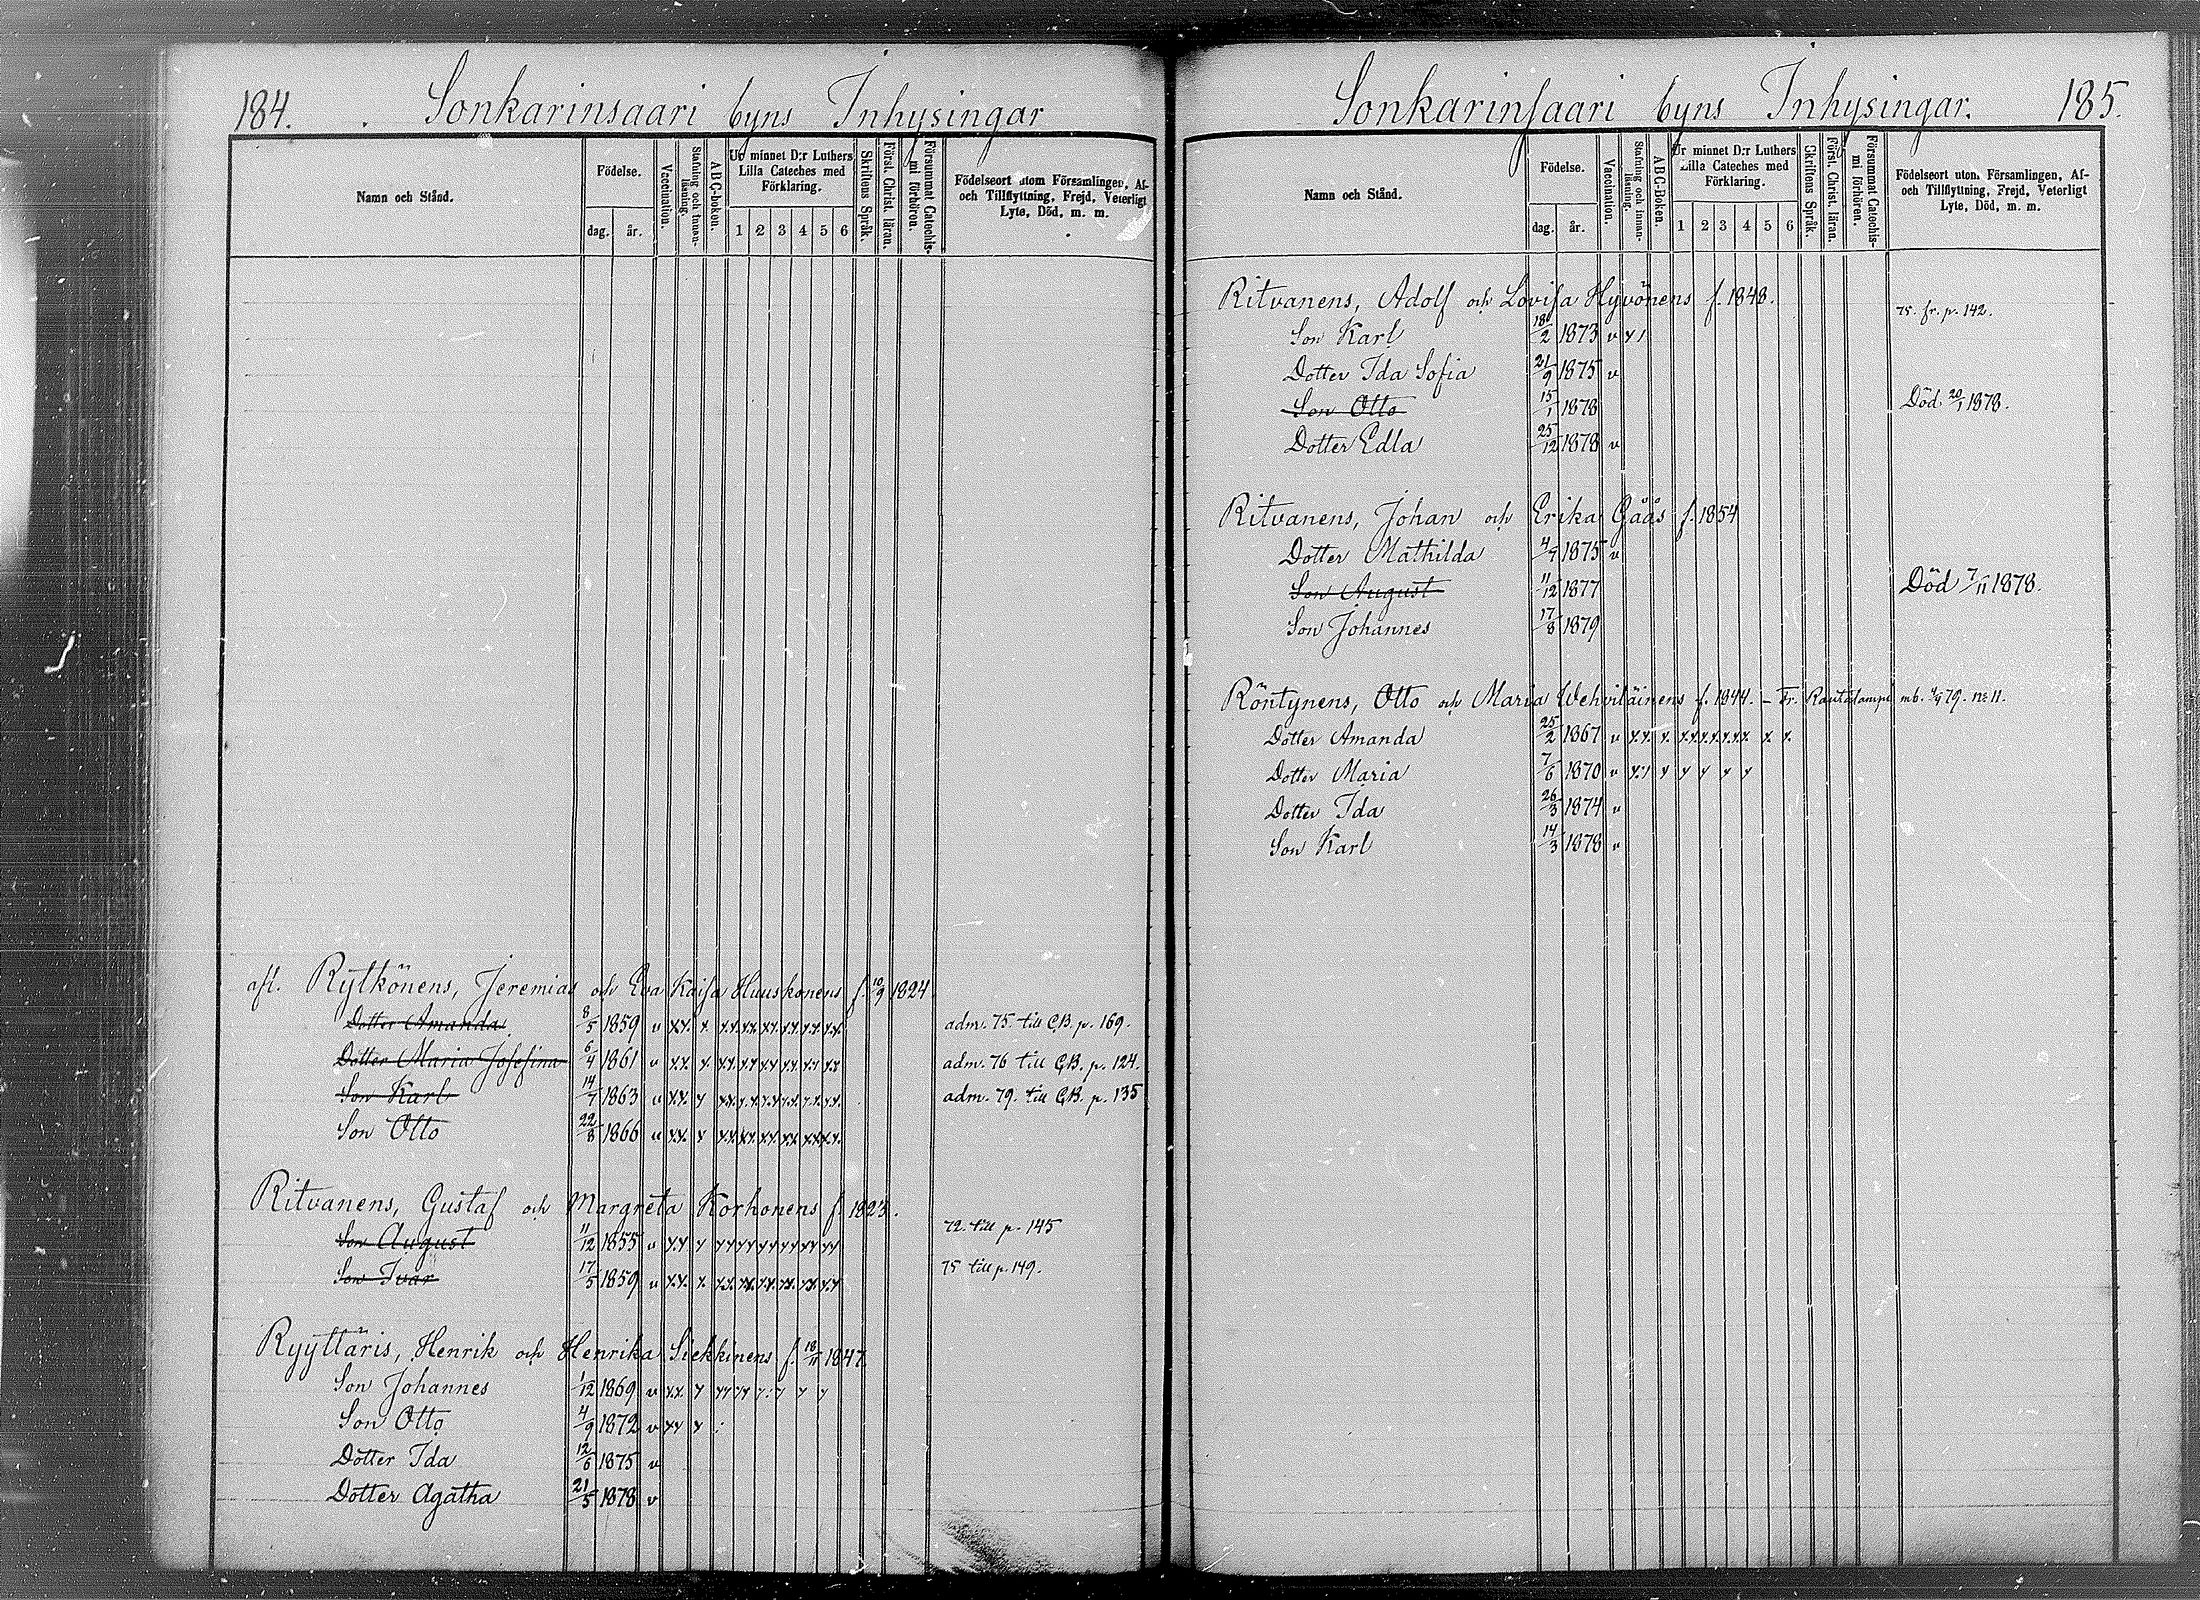 184. Sonkarinsaari byns Inhysingar
Namn och Stånd.
Födelse.
dag. år.
Vaccination.
Stafning och innan-läsning.
ABC-boken.
Ur minnet D:r Luthers Lilla Cateches med Förklaring.
1 2 3 4 5 6
Skriftens Språk.
Först. Christ. läran.
Försummat Catechismi förhören.
Födelseort utom Församlingen, Af- och Tillflyttning, Frejd, Veterligt Lyte, Död, m. m.
afl. Rytkönens, Jeremias och Eva Kaisa Huuskonens f. 10/9 1824
Dotter Amanda 8/5 1859 v xx. x. xx xx xx xx xx xx adm. 75. till C.B. p. 169.
Dotter Maria Josefina 6/4 1861 v xx. x xx xx xx xx xx xx adm. 76 till C.B. p. 124.
Son Karl 14/7 1863 v xx. x xx xx xx xx xx xx. adm. 79. till C.B. p. 135
Son Otto 22/8 1866 v xx. x xx xx xx xx xx xx.
Ritvanens, Gustaf och Margreta Korhonens f. 1823.
Son August 11/12 1855 v xx x xx xx xx xx xx xx 72. till p. 145
Son Ivar 17/5 1859 v xx. x. xx. xx. xx. xx. xx. xx 75 till p. 149.
Ryyttäris, Henrik och Henrika Siekkinens f. 18/11 1847.
Son Johannes 1/12 1869 v xx. x xx xx x x x x
Son Otto 4/9 1872 v xx x
Dotter Ida 12/6 1875 v
Dotter Agatha 21/5 1878 v
Sonkarinsaari byns Inhysingar. 185.
Namn och Stånd.
Födelse.
dag. år.
Vaccination.
Stafning och innan-läsning.
ABC-Boken
Ur minnet D:r Luthers Lilla Cateches med Förklaring.
1 2 3 4 5 6
Skriftens Språk.
Först. Christ. läran.
Försummat Catechismi förhören.
Födelseort utom Församlingen, Af- och Tillflyttning, Frejd, Veterligt Lyte, Död, m. m.
Ritvanens, Adolf och Lovisa Hyvönens f. 1848. 75. fr. p. 142.
Son Karl 18/2 1873 v x /
Dotter Ida Sofia 21/9 1875 v
Son Otto 15/1 1878 Död 20/1 1878.
Dotter Edla 25/12 1878 v
Ritvanens, Johan och Erika Gåås f. 1854
Dotter Mathilda 4/7 1875 v
Son August 11/12 1877 Död 7/11 1878.
Son Johannes 17/8 1879
Röntynens, Otto och Maria Wehviläinens f. 1844. – Fr. Rautalampi mb. 79. No 11.
Dotter Amanda 25/2 1867 v xx. x. xx xx xx x x x.
Dotter Maria 7/6 1870 v x/ x x x x x
Dotter Ida 26/3 1874 v
Son Karl 14/3 1878 v